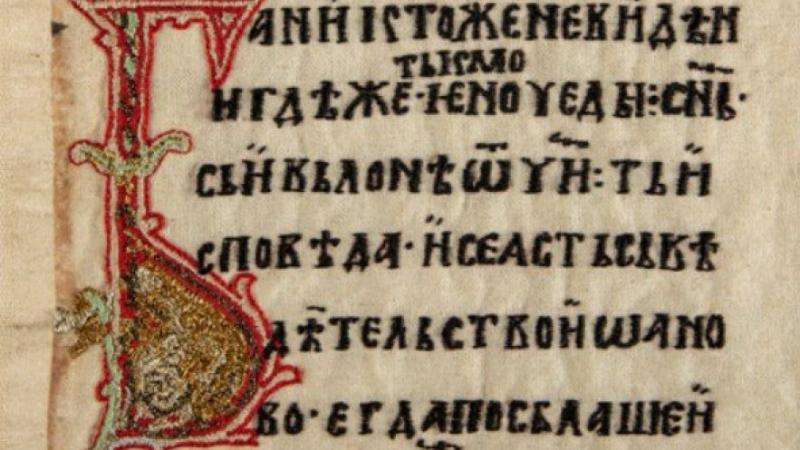 АНИКТОЖЕНЕВИДѢН
ТЬКМО
ИГДѢЖЕ·ѤНОУЕДЫ:СН҃Ь·
СЬИВЬЛОНѢѾУИ:ТЬИ
СПОВѢДА·ИСЕАСТЬСЬВѢ
ДѢТЕЛЬСТВОИѠАНО
ВО·ЕГДАПОСЬЛАШЕИ